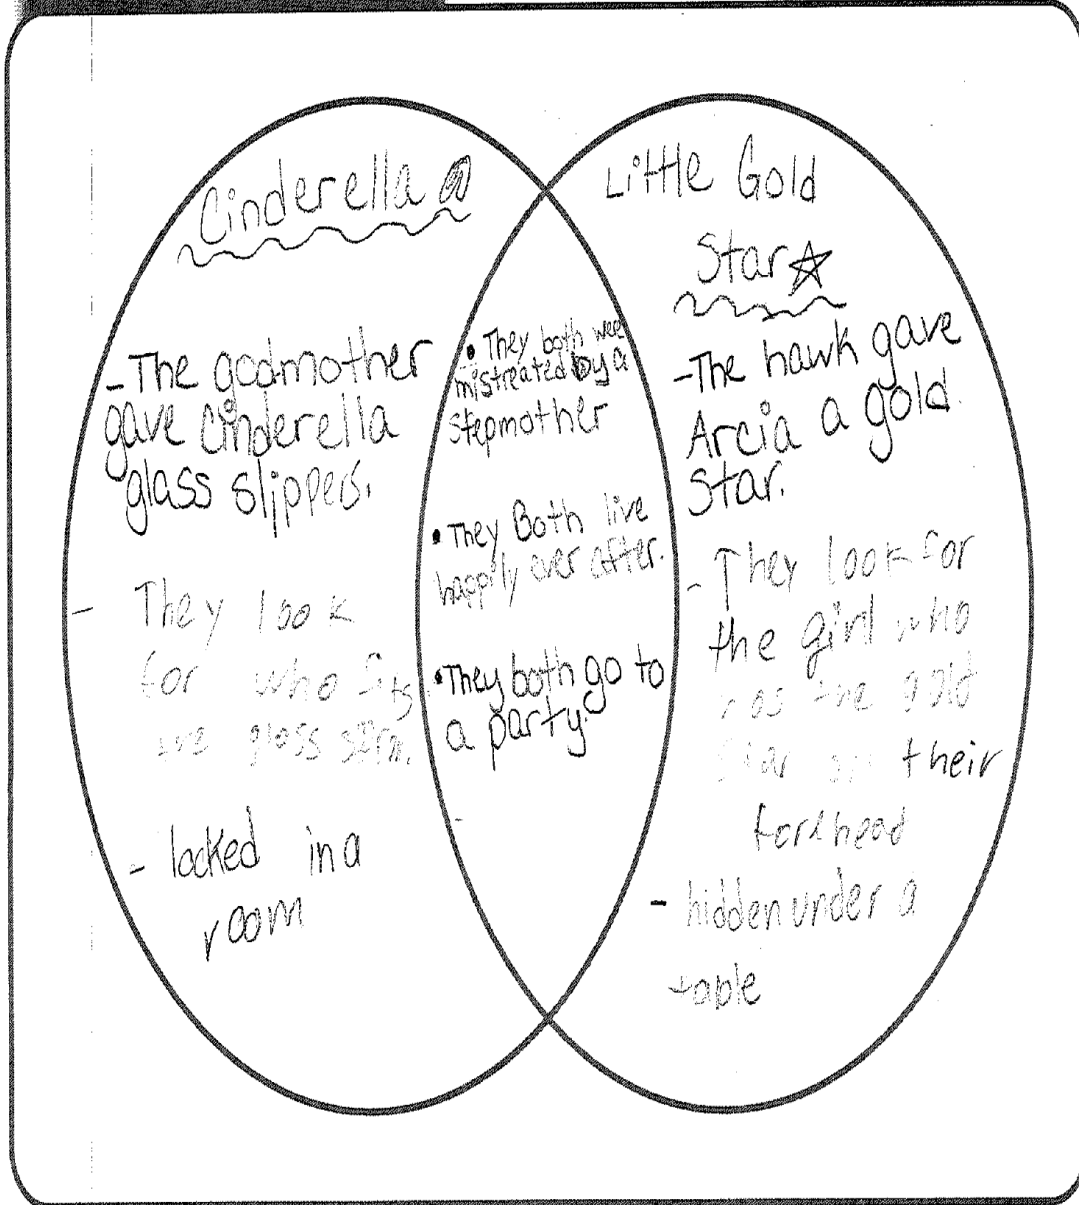 Cinderella
-The godmother
gave Cinderella
glass slippers.
- They look
for who fits
the glass
- locked in a
room
• They both
mistreated by a
stepmother
• They Both live
happily ever after.
• They both go to
a party.
Little Gold
Star
-The hawk gave
Arcia a gold
star.
- They look for
the girl who
has the gold
star on their
forehead
- hidden under a
table